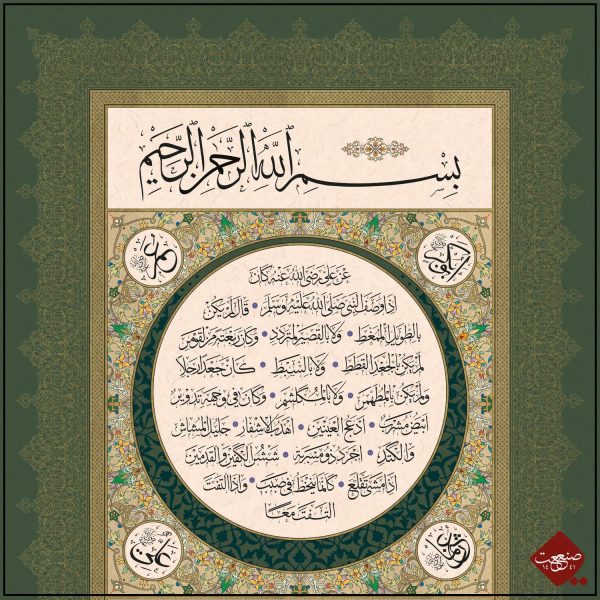 بسم الله الرحمن الرحيم
أبو بكر
عمر
عن علي رضي الله عنه كان
إذا وصف النبي صلى الله عليه وسلم قال لم يكن
بالطويل الممغط ولا بالقصير المتردد وكان ربعة من القوم
لم يكن بالجعد القطط ولا بالسبط كان جعدا رجلا
ولم يكن بالمطهم ولا بالمكلثم وكان في وجهه تدوير
أبيض مشرب أدعج العينين أهدب الأشفار جليل المشاش
والكتد أجرد ذو مسربة شثن الكفين والقدمين
إذا مشى تقلع كأنما ينحط في صبب وإذا التفت
التفت معا
عثمان
علي
صنعت